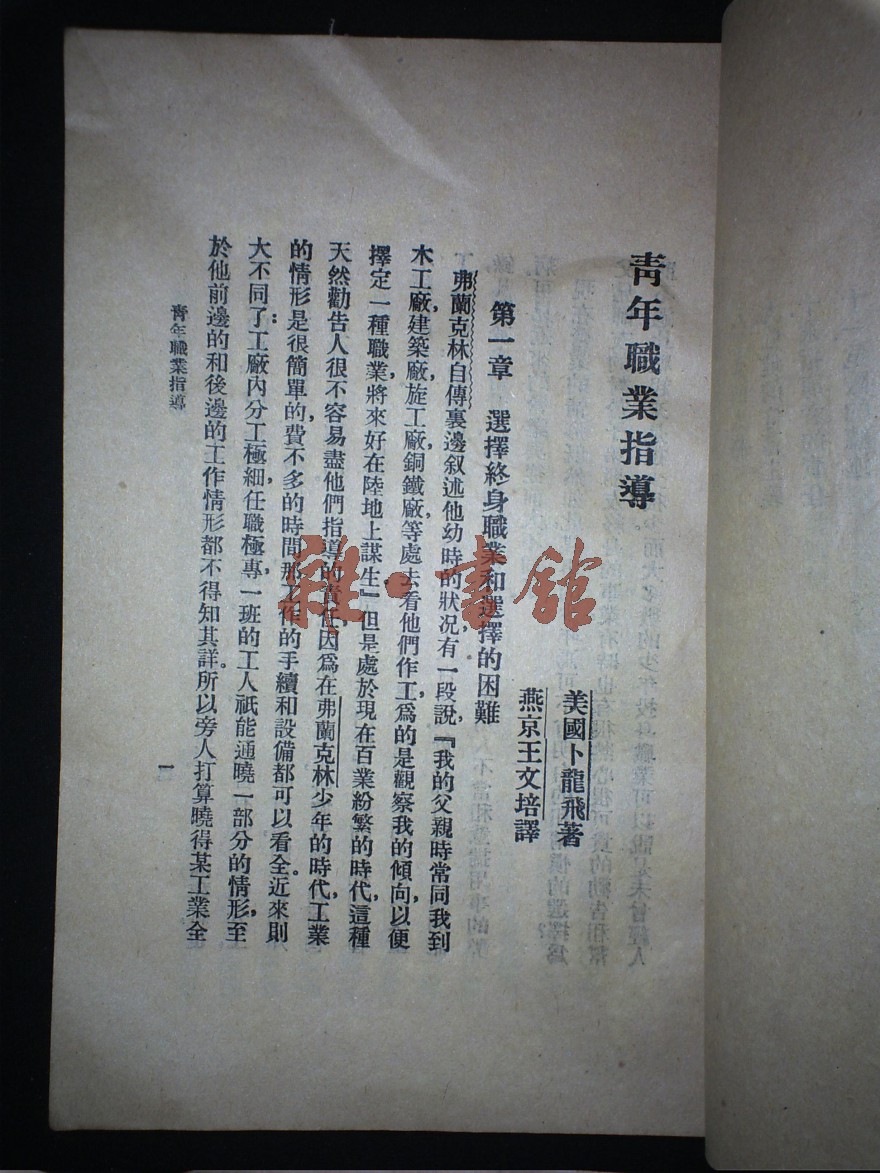 靑年職業指導
美國卜龍飛著
燕京王文培譯
第一章　選擇終身職業和選擇的困難
弗蘭克林自傳裏邊叙述他幼時的狀况有一段說，『我的父親時常同我到
木工廠，建築廠，旋工廠，銅鐵廠，等處去看他們作工，爲的是觀察我的傾向，以便
擇定一種職業，將來好在陸地上謀生。』但是處於現在百業紛繁的時代，這種
天然勸告人很不容易盡他們指導的責任，因爲在弗蘭克林少年的時代，工業
的情形是很簡單的，費不多的時間，那工作的手續和設備都可以看全。近來則
大不同了：工廠內分工極細，任職極專，一班的工人祇能通曉一部分的情形，至
於他前邊的和後邊的工作情形都不得知其詳。所以旁人打算曉得某工業全
靑年職業指導
一
雜·書館